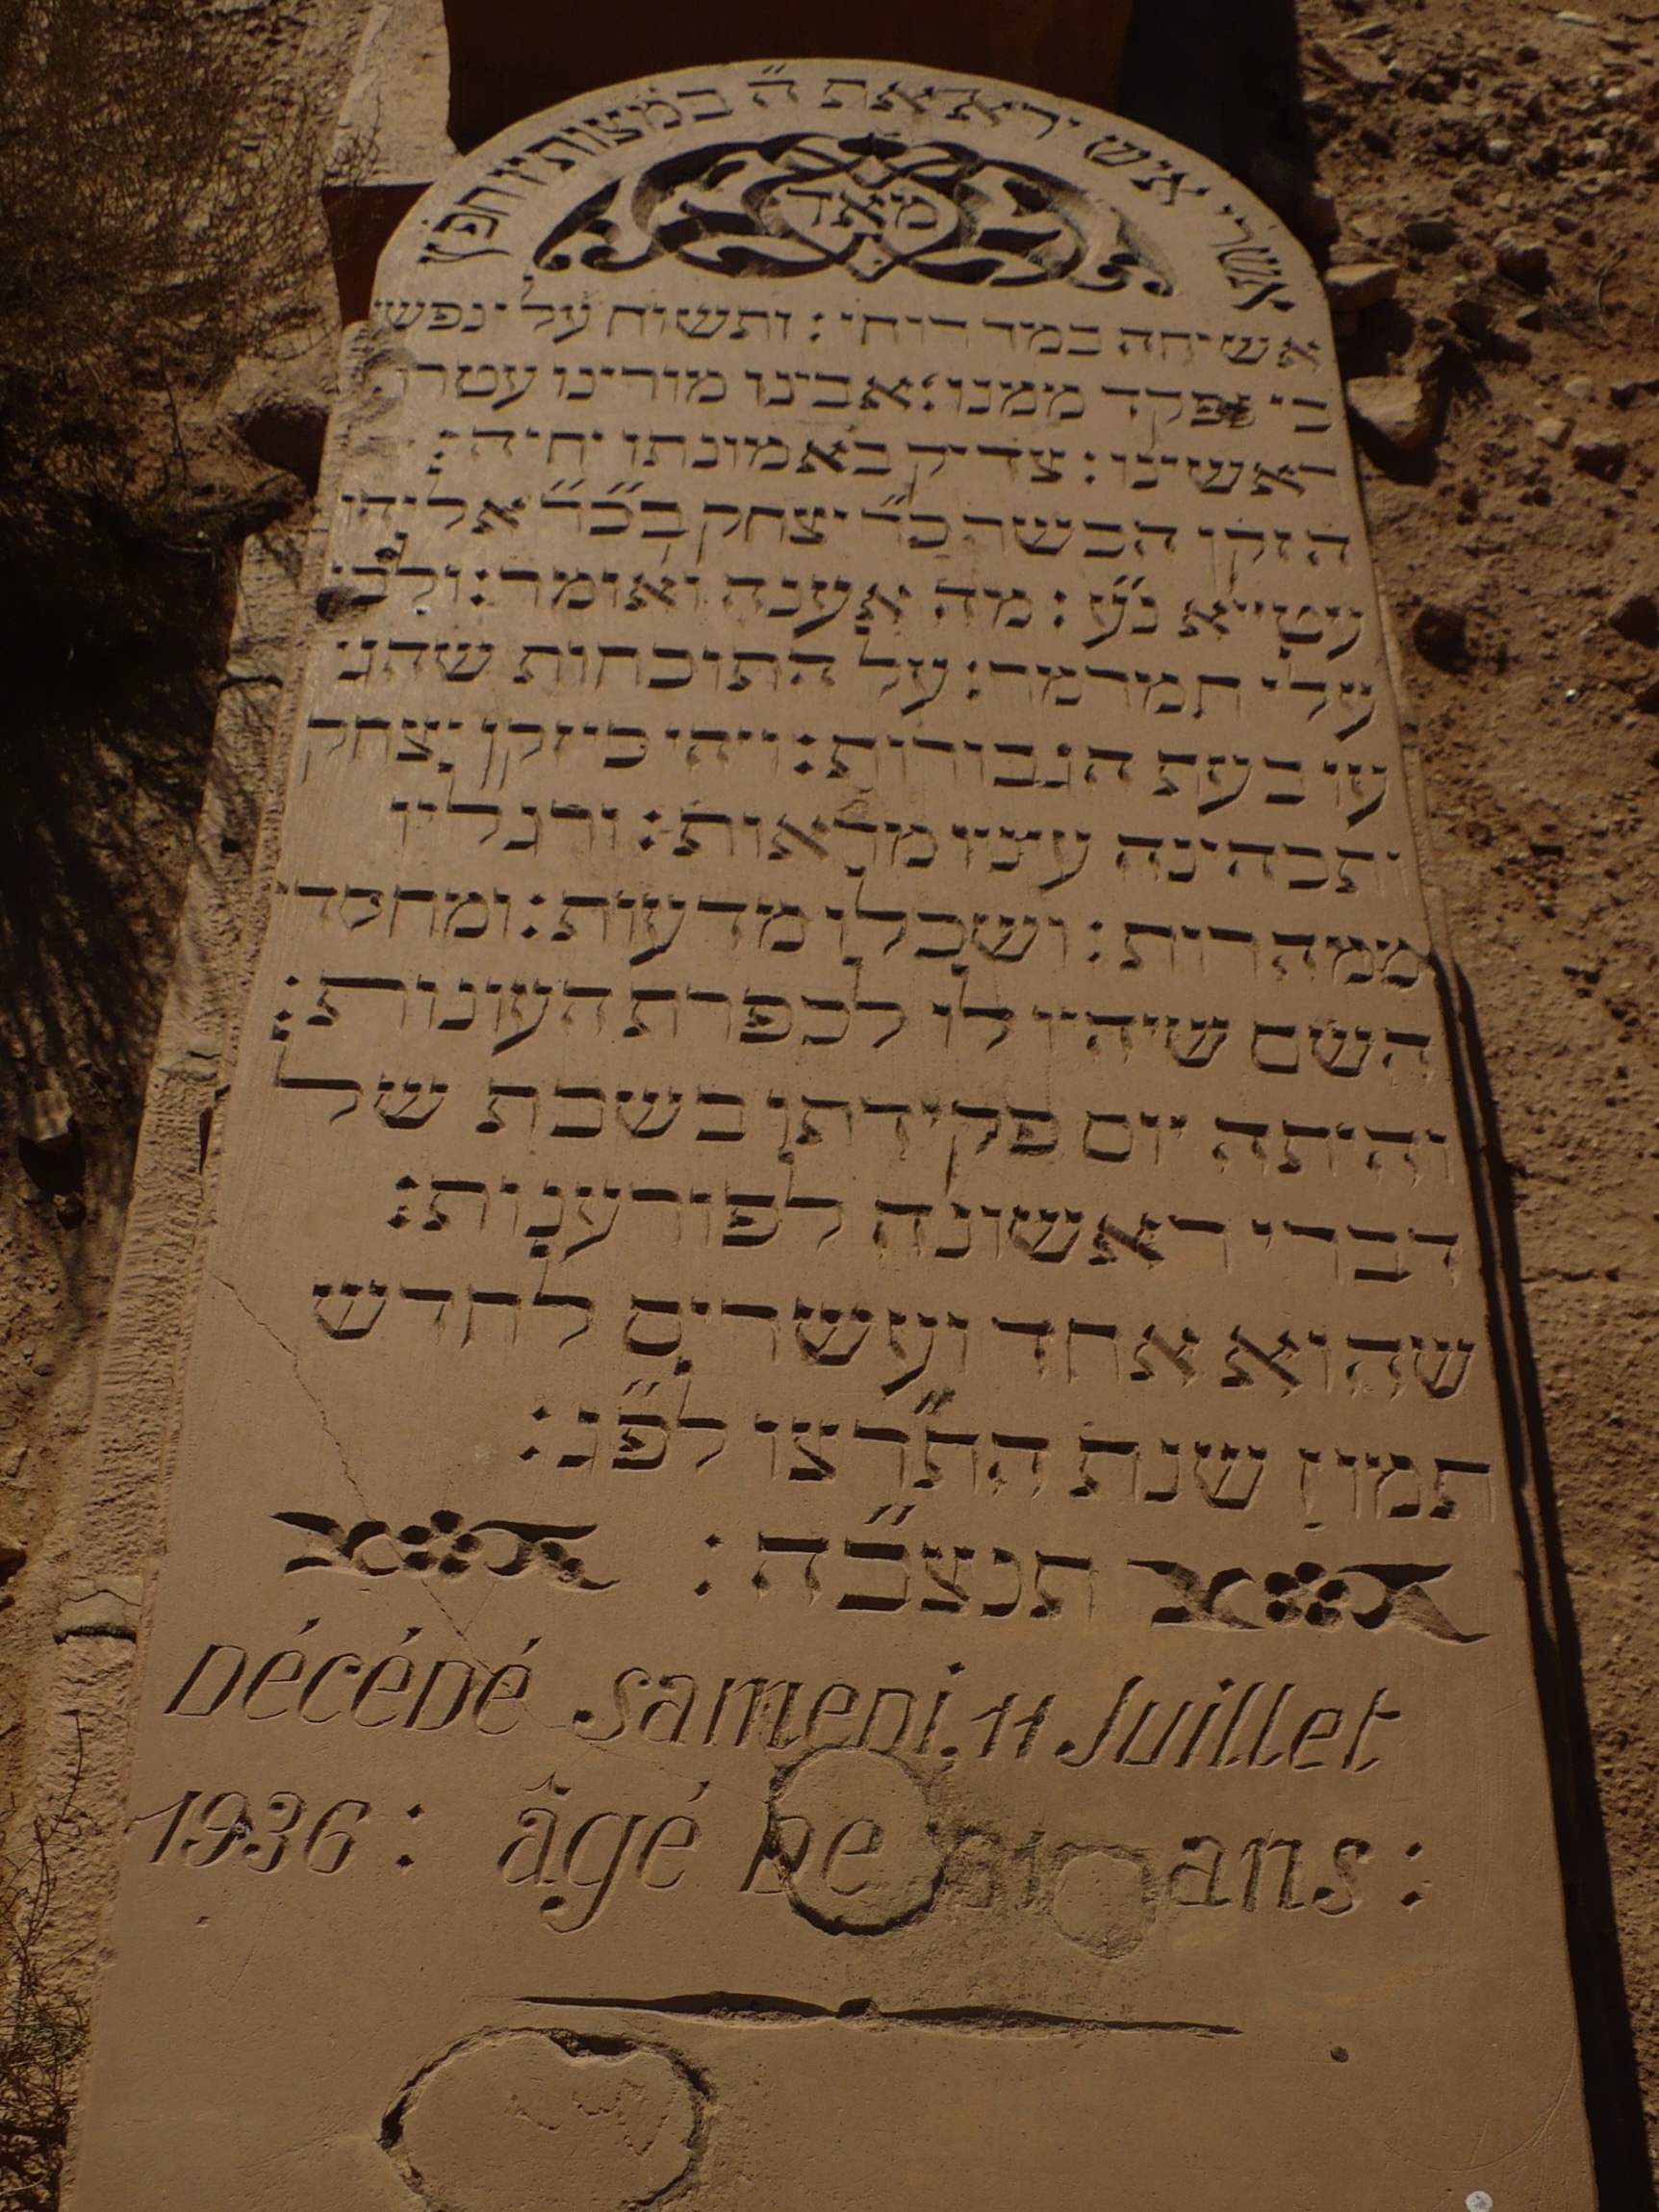 אשרי איש ירא את ה״ במצותיו חפץ
מאד
אשיחה במר רוחי : ותשוח עלי נפשי
כי נפקד ממנו : אבינו מורינו עטרת
ראשינו : צדיק באמונתו יחיה :
הזקן הכשר כ״ר יצחק בכ״ר אליהו
עטייא נ״ע : מה אענה ואומר : ולבי
עלי תמרמר : על התוכחות שהגי
עו בעת הגבורות : ויהי כי זקן יצחק
ותכהינה עיניו מראות : ורגליו
ממהרות : ושכלו מדעות : ומחסדי
השם שיהיו לו לכפרת העונות :
והיתה יום פקידתו בשבת של
דברי ראשונה לפורענות :
שהוא אחד ועשרים לחדש
תמוז שנת התרצ״ו לפ״ג :
תנצב״ה :
Décédé samedi. 11 Juillet
1936 : âgé de ans :